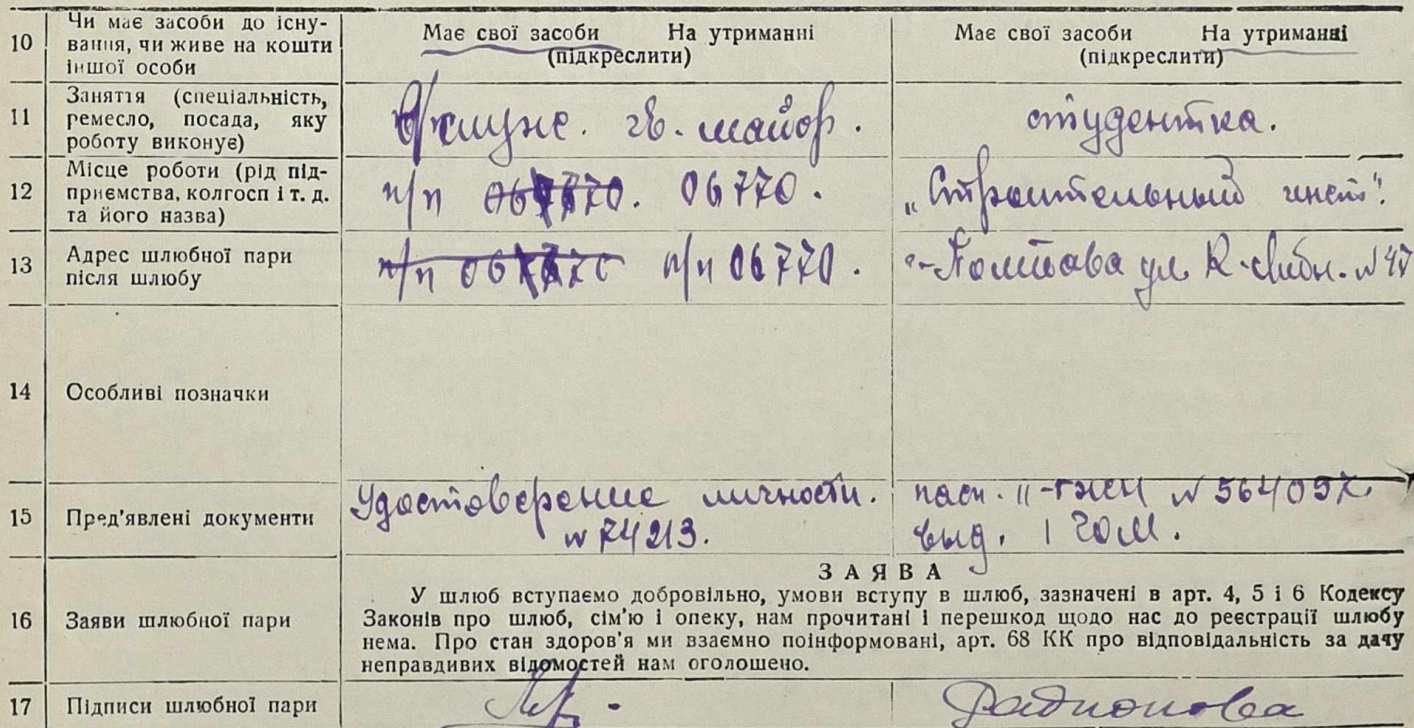 10
Чи має засоби до існу-
вання, чи живе на кошти
іншої особи
Має свої засоби На утриманні
(підкреслити)
Має свої засоби На утриманні
(підкреслити)
11
Заняття (спеціальність,
ремесло, посада, яку
роботу виконує)
в/служ. гв. майор.
студентка.
12
Місце роботи (рід під-
приємства, колгосп і т. д.
та його назва)
п/п 06770.
„Строительный инст".
13
Адрес шлюбної пари
після шлюбу
п/п 06770.
Полтава ул. К-Либн. № 47
14
Особливі позначки
15
Пред'явлені документи
Удостоверение личности.
№ 74213.
пасп. № 564097.
выд. 1 ГОМ.
16
Заяви шлюбної пари
ЗАЯВА
У шлюб вступаємо добровільно, умови вступу в шлюб, зазначені в арт. 4, 5 і 6 Кодексу
Законів про шлюб, сім'ю і опеку, нам прочитані і перешкод щодо нас до реєстрації шлюбу
нема. Про стан здоров'я ми взаємно поінформовані, арт. 68 КК про відповідальність за дачу
неправдивих відомостей нам оголошено.
17
Підписи шлюбної пари
Радионова